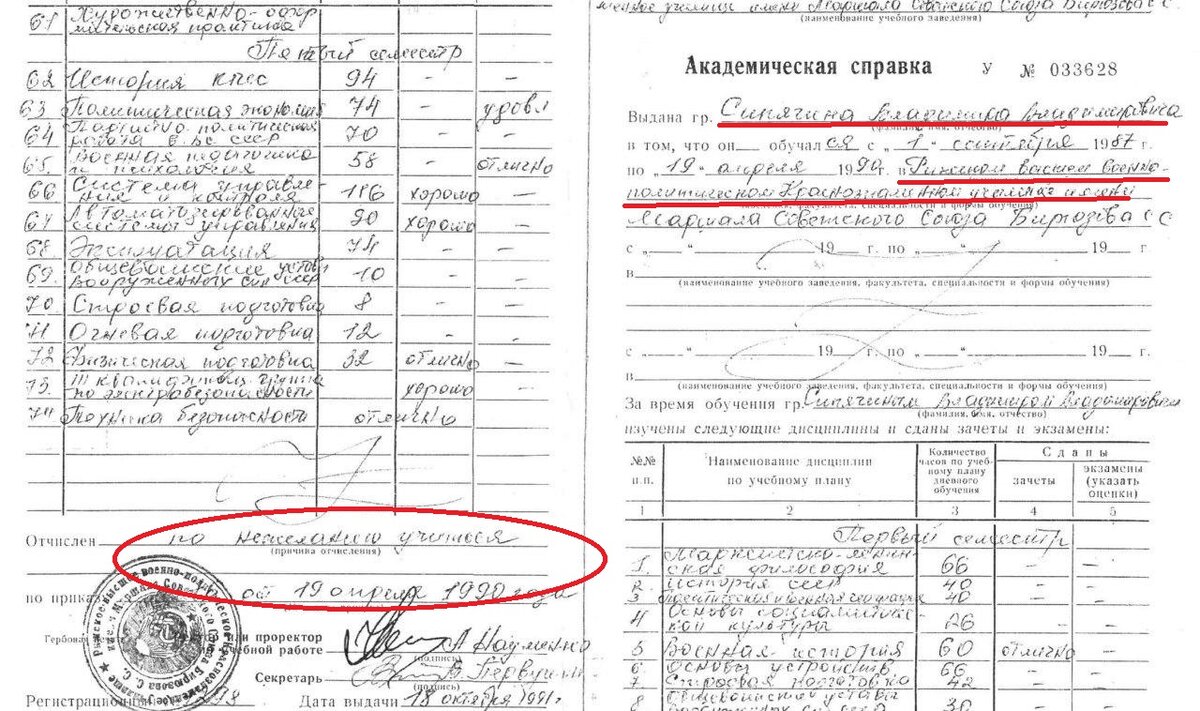 61 Художественно-офор-
мительская практика
Пятый семестр
62 История КПСС 94 – –
63 Политическая экономия 74 – удовл
64 Партийно-политическая
работа в ВС СССР 70 – –
65. Военная педагогика
и психология 58 – отлично
66 Система управле-
ния и контроля 186 хорошо –
67 Автоматизированная
система управления 90 хорошо –
68 Эксплуатация 74 – –
69. Общевоинские уставы
вооруженных сил СССР 10 – –
70 Строевая подготовка 8 – –
71 Огневая подготовка 12 – –
72 Физическая подготовка 32 отлично –
73. III квалификац. группа
по электробезопасности хорошо
74 Техника безопасности отлично
Отчислен по нежеланию учиться
(причина отчисления)
по приказу от 19 апреля 1990 года
Гербовая или проректор
по учебной работе А Науменко
(подпись)
Секретарь
(подпись)
Регистрационный Дата выдачи 18 октября 1991г.
Рижское высшее военно-политическое Краснознаменное училище
имени Маршала Советского Союза Бирюзова С.С.
менное училище имени Маршала Советского Союза Бирюзова С С
(наименование учебного заведения)
Академическая справка У № 033628
Выдана гр. Синягина Владимира Владимировича
(фамилия, имя, отчество)
в том, что он обучался с „1“ сентября 1987 г.
по „19“ апреля 1990 г. в Рижском высшем военно-
политическом Краснознаменном училище имени
(наименование учебного заведения, факультета, специальности и формы обучения)
Маршала Советского Союза Бирюзова С С
с „ “ 19 г. по „ “ 19 г.
в
(наименование учебного заведения, факультета, специальности и формы обучения)
с „ “ 19 г. по „ “ 19 г.
в
(наименование учебного заведения, факультета, специальности и формы обучения)
За время обучения гр. Синягиным Владимиром Владимировичем
(фамилия, имя, отчество)
изучены следующие дисциплины и сданы зачеты и экзамены:
№№ п.п. Наименование дисциплин по учебному плану Количество часов по учеб- ному плану дневного обучения Сданы
зачеты экзамены (указать оценки)
1 2 3 4 5
Первый семестр
1. Марксистско-ленин-
ская философия 66 – –
2 История СССР 40 – –
3 40 – –
4 Основы социалистичес-
кой культуры 26 – –
5 Военная история 60 отлично –
6 Основы устройств 66 – –
7 Строевая подготовка 42 – –
8 Общевоинские уставы
вооруженных сил СССР 30 – –